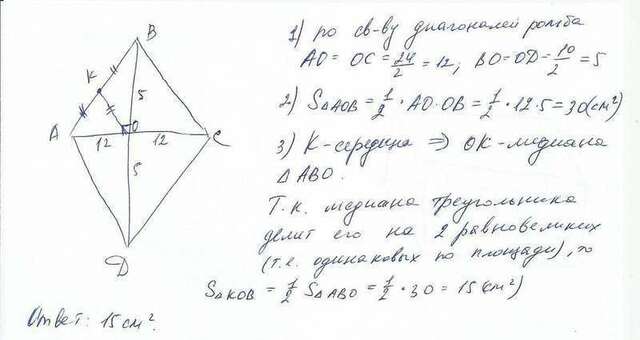 1) по св-ву диагоналей ромба
AO = OC = 24/2 = 12; BO = OD = 10/2 = 5
2) S△AOB = 1/2 · AO · OB = 1/2 · 12 · 5 = 30(см²)
3) K - середина ⇒ OK - медиана
△ABO.
Т.к. медиана треугольника
делит его на 2 равновеликих
(т.е. одинаковых по площади), то
S△KOB = 1/2 S△ABO = 1/2 · 30 = 15(см²)
Ответ: 15 см².
B
K
5
A
O
C
12
12
5
D